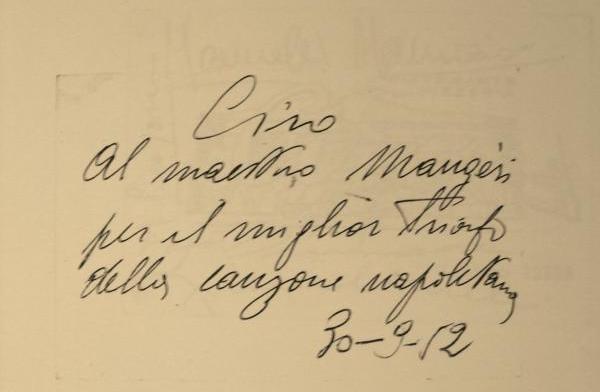 Ciro
Al maestro Mangeri
per il miglior trionfo
della canzone napoletana
30-9-52